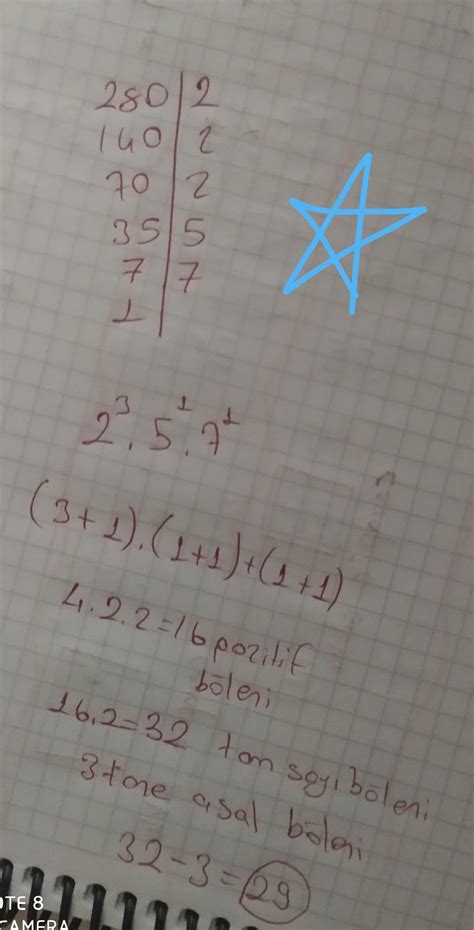 280 | 2
140 | 2
70 | 2
35 | 5
7 | 7
1 |
2³ . 5¹ . 7¹
(3+1).(1+1)+(1+1)
4.2.2=16 pozitif
böleni
16.2=32 tam sayı böleni
3 tane asal böleni
32-3=29
OTE 8
CAMERA